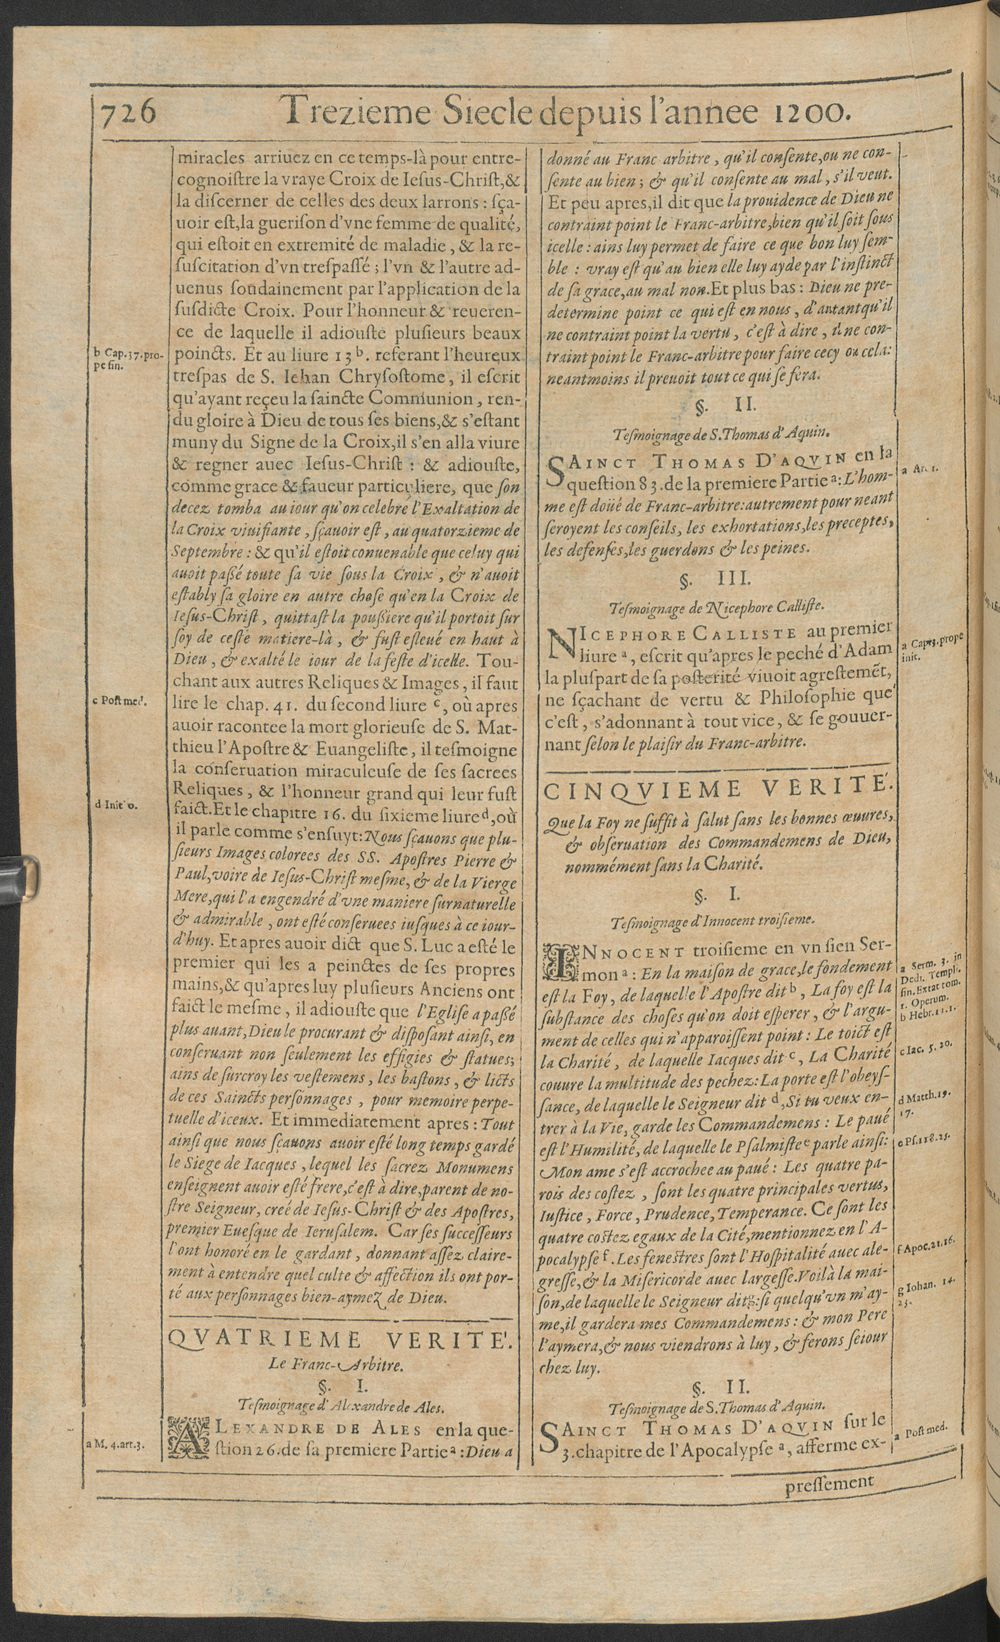 726 Trezieme Siecle depuis l'annee 1200.
miracles arriuez en ce temps-là pour entre-
cognoiſtre la vraye Croix de Ieſus-Chriſt,&
la diſcerner de celles des deux larrons : ſça-
uoir eſt,la gueriſon d'vne femme de qualité,
qui eſtoit en extremité de maladie , & la re-
ſuſcitation d'vn treſpaſſé ; l'vn & l'autre ad-
uenus ſoudainement par l'application de la
ſuſdicte Croix. Pour l'honneur & reueren-
ce de laquelle il adiouſte pluſieurs beaux
poincts. Et au liure 13 b. referant l'heureux
treſpas de S. Iehan Chryſoſtome, il eſcrit
qu'ayant reçeu la ſaincte Communion, ren-
du gloire à Dieu de tous ſes biens,& s'eſtant
muny du Signe de la Croix,il s'en alla viure
& regner auec Ieſus-Chriſt : & adiouſte,
comme grace & faueur particuliere, que ſon
decez tomba au iour qu'on celebre l'Exaltation de
la Croix viuifiante , ſçauoir eſt , au quatorzieme de
Septembre : & qu'il eſtoit conuenable que celuy qui
auoit paßé toute ſa vie ſous la Croix , & n'auoit
eſtably ſa gloire en autre choſe qu'en la Croix de
Ieſus-Chriſt , quittaſt la pouſſiere qu'il portoit ſur
ſoy de ceſte matiere-là , & fuſt eſleué en haut à
Dieu , & exalté le iour de la feſte d'icelle. Tou-
chant aux autres Reliques & Images , il faut
lire le chap. 41. du ſecond liure c, où apres
auoir racontee la mort glorieuſe de S. Mat-
thieu l'Apoſtre & Euangeliſte , il teſmoigne
la conſeruation miraculeuſe de ſes ſacrees
Reliques , & l'honneur grand qui leur fuſt
faict.Et le chapitre 16. du ſixieme liure d,où
il parle comme s'enſuyt:Nous ſçauons que plu-
ſieurs Images colorees des SS. Apoſtres Pierre &
Paul,voire de Ieſus-Chriſt meſme, & de la Vierge
Mere,qui l'a engendré d'vne maniere ſurnaturelle
& admirable , ont eſté conſeruees iuſques à ce iour-
d'huy. Et apres auoir dict que S. Luc a eſté le
premier qui les a peinctes de ſes propres
mains,& qu'apres luy pluſieurs Anciens ont
faict le meſme , il adiouſte que l'Egliſe a paßé
plus auant,Dieu le procurant & diſpoſant ainſi, en
conſeruant non ſeulement les effigies & ſtatues;
ains de ſurcroy les veſtemens , les baſtons , & licts
de ces Saincts perſonnages , pour memoire perpe-
tuelle d'iceux. Et immediatement apres : Tout
ainſi que nous ſçauons auoir eſté long temps gardé
le Siege de Iacques , lequel les ſacrez Monumens
enſeignent auoir eſté frere,c'eſt à dire,parent de no-
ſtre Seigneur, creé de Ieſus-Chriſt & des Apoſtres,
premier Eueſque de Ieruſalem. Car ſes ſucceſſeurs
l'ont honoré en le gardant , donnant aſſez claire-
ment à entendre quel culte & affection ils ont por-
té aux perſonnages bien-aymez de Dieu.
QVATRIEME VERITE'.
Le Franc-Arbitre.
§. I.
Teſmoignage d'Alexandre de Ales.
ALEXANDRE DE ALES en la que-
ſtion 26.de ſa premiere Partie a : Dieu a
b Cap.37.pro-
pe fin.
c Poſt med.
d Init°.
a M. 4.art.3.
donné au Franc arbitre , qu'il conſente,ou ne con-
ſente au bien ; & qu'il conſente au mal , s'il veut.
Et peu apres,il dit que la prouidence de Dieu ne
contraint point le Franc-arbitre,bien qu'il ſoit ſous
icelle : ains luy permet de faire ce que bon luy ſem-
ble : vray eſt qu'au bien elle luy ayde par l'inſtinct
de ſa grace,au mal non.Et plus bas : Dieu ne pre-
determine point ce qui eſt en nous , d'autant qu'il
ne contraint point la vertu , c'eſt à dire , il ne con-
traint point le Franc-arbitre pour faire cecy ou cela:
neantmoins il preuoit tout ce qui ſe fera.
§. II.
Teſmoignage de S.Thomas d'Aquin.
SAINCT THOMAS D'AQVIN en la
queſtion 83.de la premiere Partie a: L'hom-
me eſt doüé de Franc-arbitre:autrement pour neant
ſeroyent les conſeils, les exhortations,les preceptes,
les defenſes,les guerdons & les peines.
§. III.
Teſmoignage de Nicephore Calliſte.
NICEPHORE CALLISTE au premier
liure a, eſcrit qu'apres le peché d'Adam
la pluſpart de ſa poſterité viuoit agreſtemẽt,
ne ſçachant de vertu & Philoſophie que
c'eſt , s'adonnant à tout vice , & ſe gouuer-
nant ſelon le plaiſir du Franc-arbitre.
CINQVIEME VERITE'.
Que la Foy ne ſuffit à ſalut ſans les bonnes œuures,
& obſeruation des Commandemens de Dieu,
nommément ſans la Charité.
§. I.
Teſmoignage d'Innocent troiſieme.
INNOCENT troiſieme en vn ſien Ser-
mon a : En la maiſon de grace,le fondement
eſt la Foy , de laquelle l'Apoſtre dit b , La foy eſt la
ſubſtance des choſes qu'on doit eſperer , & l'argu-
ment de celles qui n'apparoiſſent point : Le toict eſt
la Charité , de laquelle Iacques dit c , La Charité
couure la multitude des pechez: La porte eſt l'obeyſ-
ſance, de laquelle le Seigneur dit d ,Si tu veux en-
trer à la Vie, garde les Commandemens : Le paué
eſt l'Humilité, de laquelle le Pſalmiſte e parle ainſi:
Mon ame s'eſt accrochee au paué : Les quatre pa-
rois des coſtez , ſont les quatre principales vertus,
Iuſtice , Force , Prudence, Temperance. Ce ſont les
quatre coſtez egaux de la Cité,mentionnez en l'A-
pocalypſe f. Les feneſtres ſont l'Hoſpitalité auec ale-
greſſe,& la Miſericorde auec largeſſe.Voilà la mai-
ſon,de laquelle le Seigneur dit g:ſi quelqu'vn m'ay-
me,il gardera mes Commandemens : & mon Pere
l'aymera,& nous viendrons à luy , & ferons ſeiour
chez luy.
§. II.
Teſmoignage de S.Thomas d'Aquin.
SAINCT THOMAS D'AQVIN ſur le
3.chapitre de l'Apocalypſe a, afferme ex-
preſſement
a Art. 1.
a Cap.13.prope
init.
a Serm. 3. in
Dedi. Templi.
fin.Extat tom.
1. Operum.
b Hebr.11.1.
c Iac. 5. 20.
d Matth.19.
17.
e Pſ.118.25.
f Apoc.21.16.
g Iohan. 14.
23.
a Poſt med.